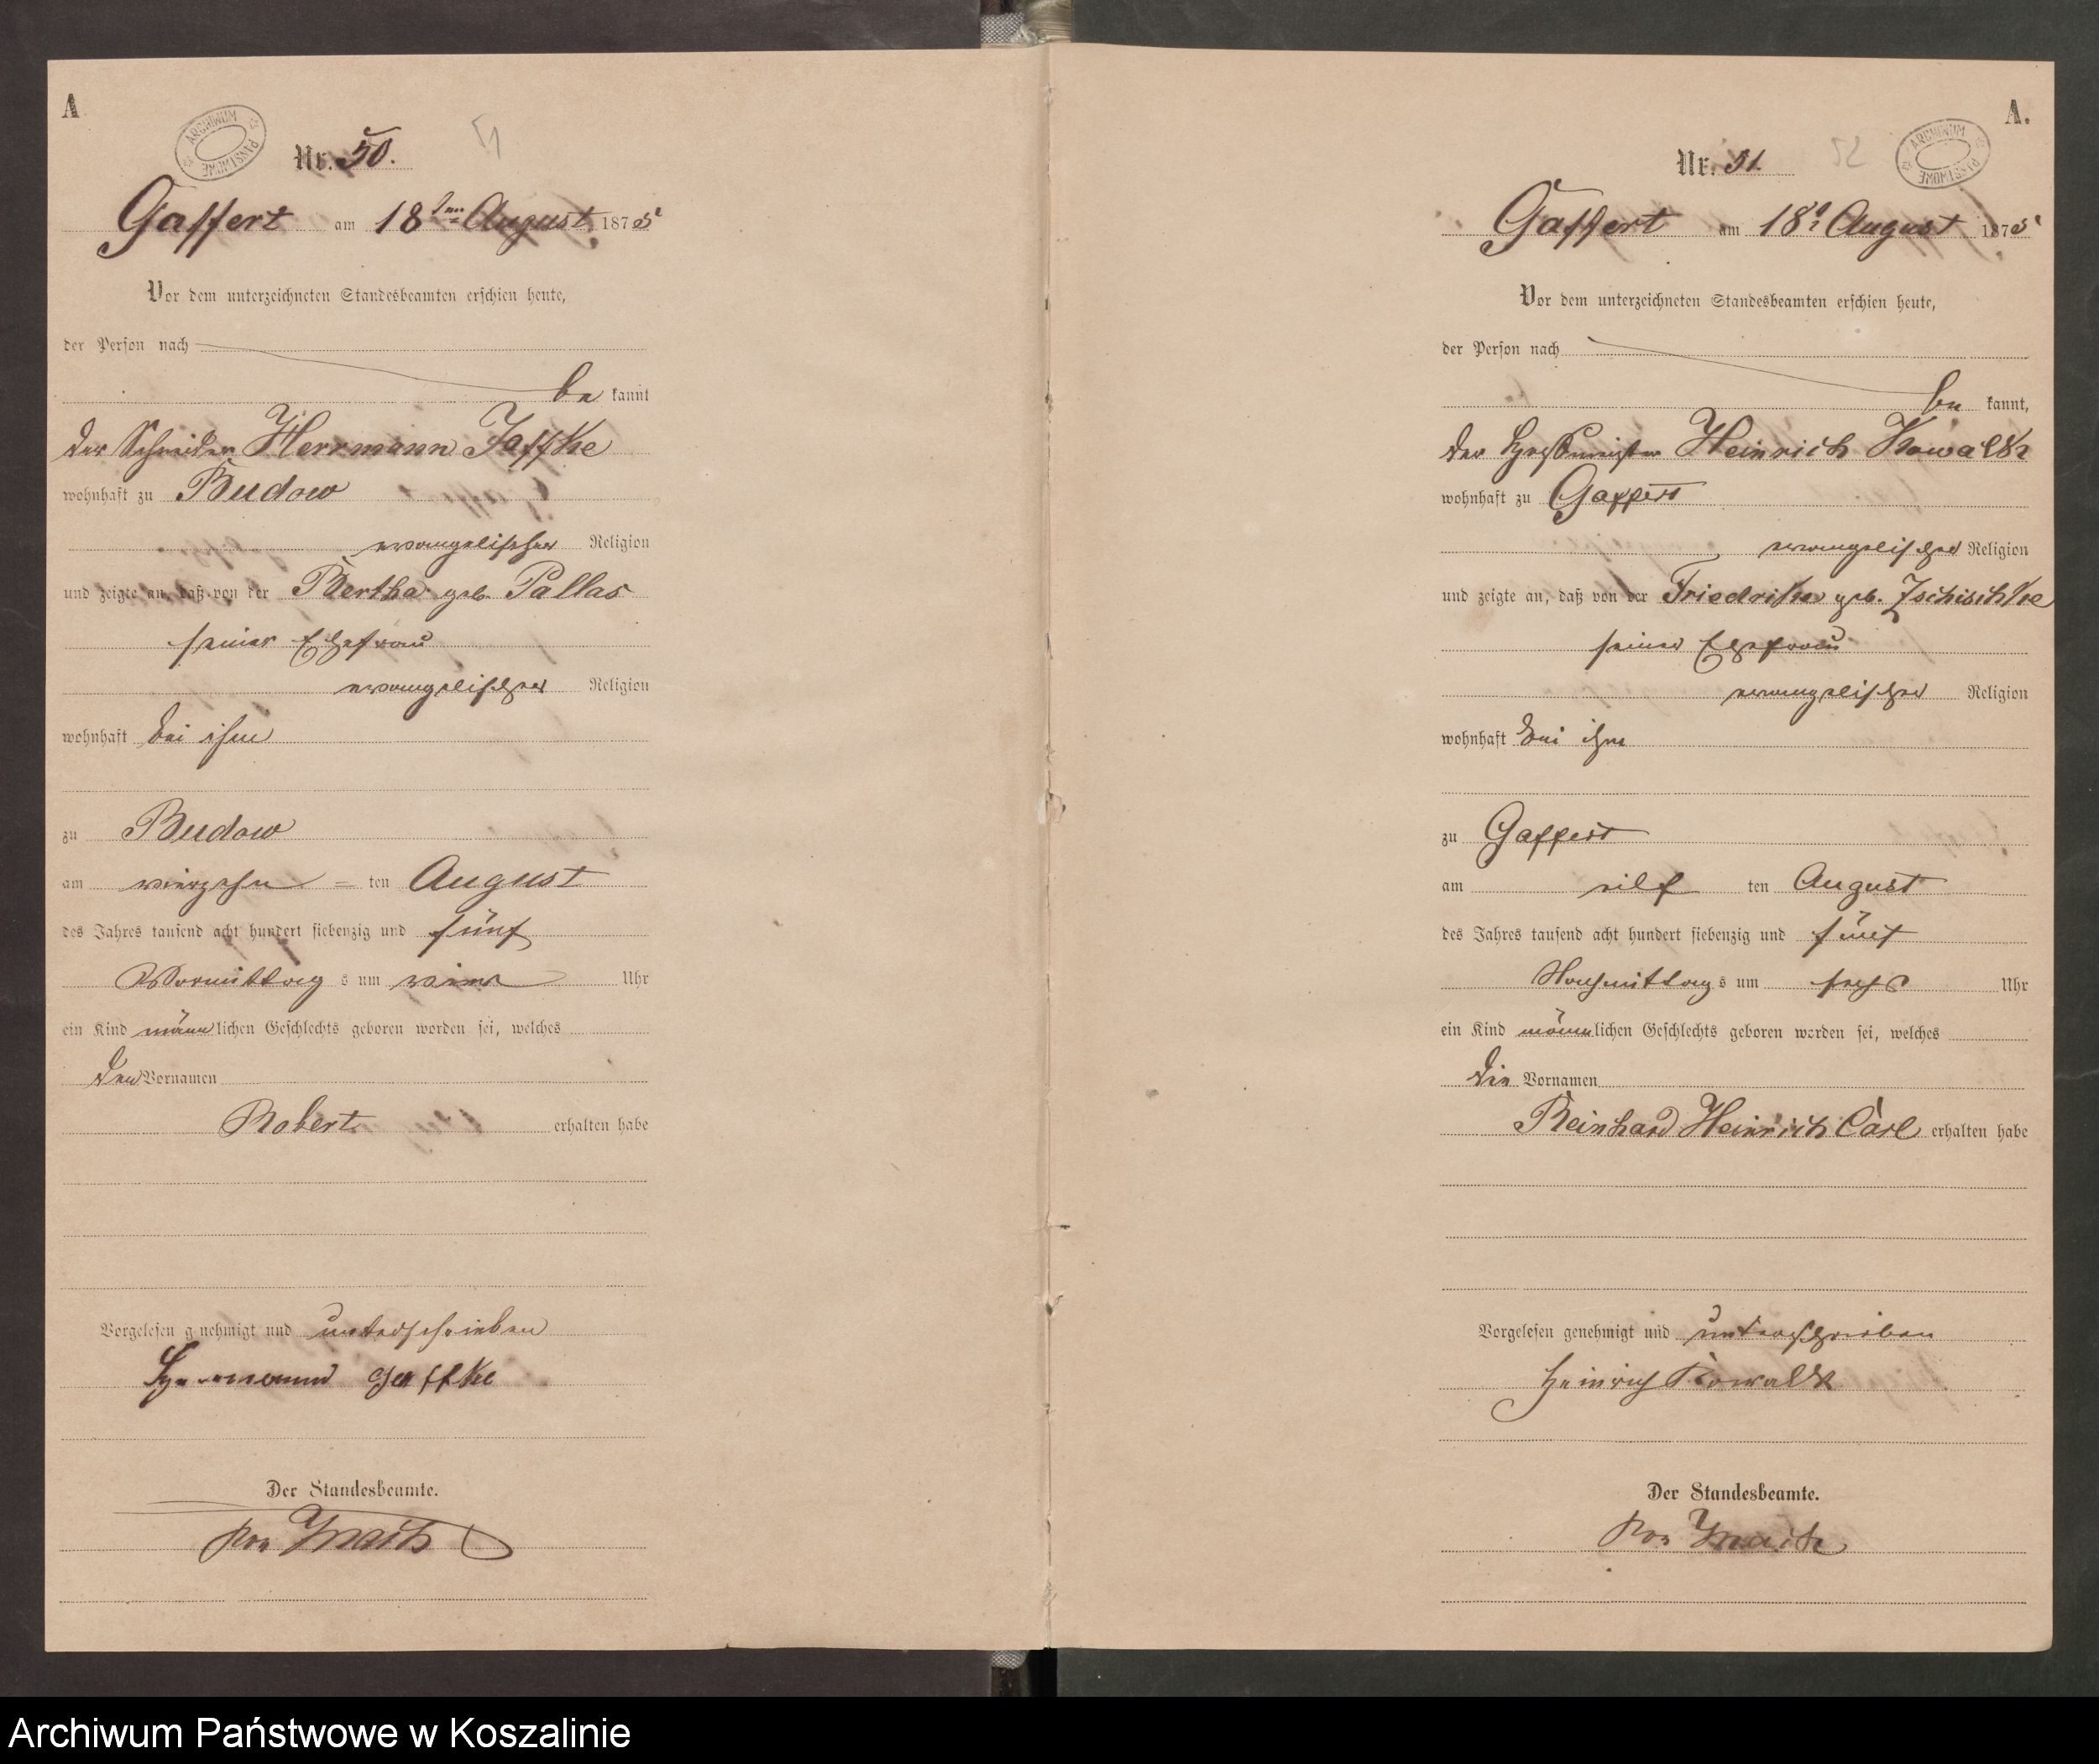 A
ARCHIWUM PAŃSTWOWE
Nr. 50.
51
Gaffert am 18ten August 1875
Vor dem unterzeichneten Standesbeamten erschien heute,
der Person nach
be kannt
der Schneider Herrmann Jaffke
wohnhaft zu Budow
evangelischer Religion
und zeigte an, daß von der Bertha geb. Pallas
seiner Ehefrau
evangelischer Religion
wohnhaft bei ihm
zu Budow
am vierzehn = ten August
des Jahres tausend acht hundert siebenzig und fünf
Vormittag s um vier Uhr
ein Kind männlichen Geschlechts geboren worden sei, welches
den Vornamen
Robert erhalten habe
Vorgelesen genehmigt und unterschrieben
Herrmann Jaffke
Der Standesbeamte.
A.
ARCHIWUM PAŃSTWOWE
Nr. 51.
52
Gaffert am 18t August 1875
Vor dem unterzeichneten Standesbeamten erschien heute,
der Person nach
be kannt,
der Heinrich Kowalk
wohnhaft zu Gaffert
evangelischer Religion
und zeigte an, daß von der Friedrike geb. Zschischke
seiner Ehefrau
evangelischer Religion
wohnhaft bei ihm
zu Gaffert
am eilf ten August
des Jahres tausend acht hundert siebenzig und fünf
Nachmittag s um sechs Uhr
ein Kind männlichen Geschlechts geboren worden sei, welches
die Vornamen
Reinhard Heinrich Carl erhalten habe
Vorgelesen genehmigt und unterschrieben
Heinrich Kowalk
Der Standesbeamte.
Archiwum Państwowe w Koszalinie